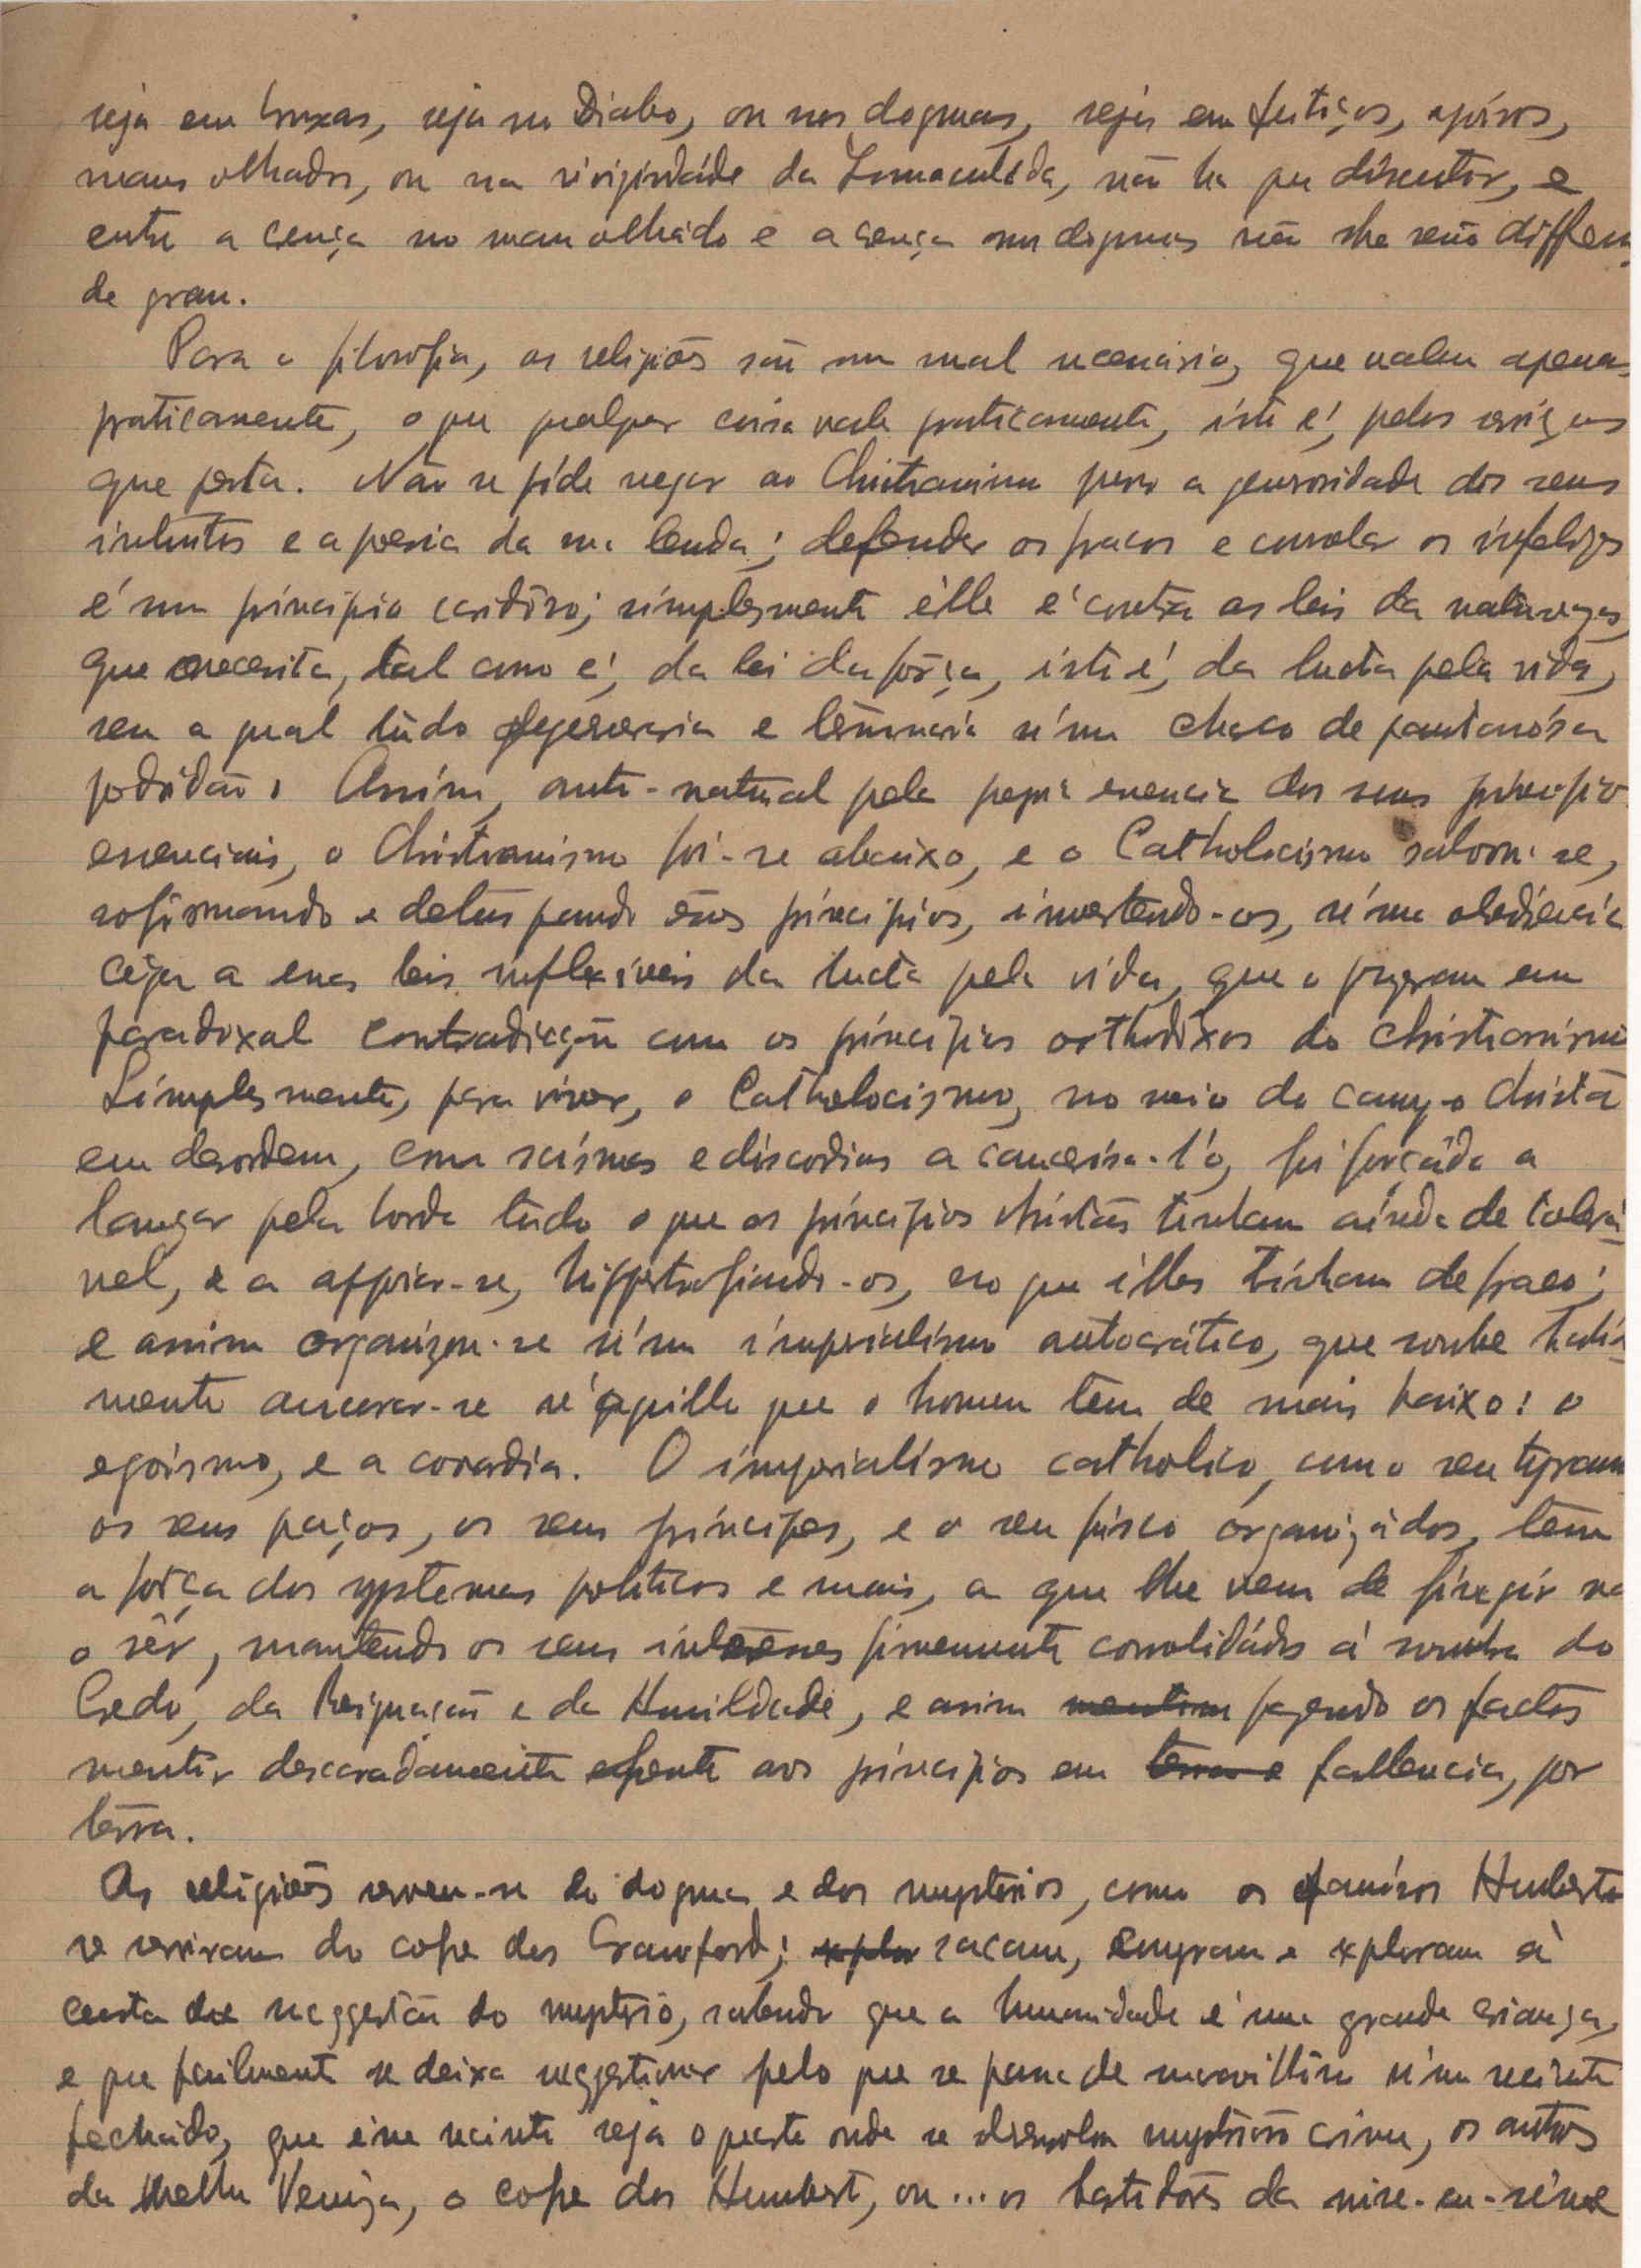 seja em bruxas, seja no Diabo, ou nos dogmas, seja em feitiços,
maus olhados, ou na virgindáde da Immaculada, não ha que discutir, e
entre a crença no mau olhádo e a crença nos dogmas não ha senão
de grau.
Para a filosofia, as religiões são um mal necessário, que valem apenas
praticamente, o que qualquer coisa vale praticamente, isto é, pelos serviços
que presta. Não se póde negar ao Christianismo puro a generosidade dos seus
intuitos e a poesia da sua lenda; defender os fracos e consolar os infelizes
é um principio caridoso; simplesmente êlle é contra as leis da natureza,
que necessita, tal como é, da lei da fôrça, isto é, da lucta pela vida,
sem a qual tudo degeneraria e terminaria n'um charco de pantanósa
podridão. Assim, anti-natural pela propria essencia dos seus principios
essenciais, o Christianismo foi-se abaixo, e o Catholocismo salvou-se,
sofismando e deturpando êsses principios, invertendo-os, n'uma obediencia
cega a essas leis inflexiveis da lucta pela vida, que o puzeram em
paradoxal contradicção com os principios orthodoxos do christianismo
Simplesmente, para viver, o Catholocismo, no meio do campo christão
em desordem, com scismas e discordias a canceirá-l'o, foi forçádo a
lançar pela borda tudo o que os principios christãos tinham ainda de tolerá-
vel, e a appoiar-se, hippertrofiando-os, no que êlles tinham de fraco;
e assim organizou-se n'um imperialismo autocrático, que soube
mente ancorar-se n'aquillo que o homem tem de mais baixo: o
egoismo, e a covardia. O imperialismo catholico, com o seu tyranno
os seus paços, os seus principes, e o seu fisco organizádos, tem
a fôrça dos systemas politicos e mais, a que lhe vem de fingir não
o sêr, mantendo os seus interesses firmemente consolidádos á sombra do
Credo, da Resignação e da Humildade, e assim fazendo os factos
mentir descaradamente frente aos principios em fallencia, por
terra.
As religiões servem-se do dogma e dos mysterios, como os famósos Humberts
se serviram do cofre dos Crawford; sacam, e exploram á
custa da suggestão do mysterio, sabendo que a humanidade é uma grande criança,
e que facilmente se deixa suggestionar pelo que se passa de maravilhoso n'um recinto
fechádo, que êsse recinto seja o quarto onde se desenrola mysterioso crime, os antros
da velha Veneza, o cofre dos Humbert, ou ... os bastidores da mise-en-scéne